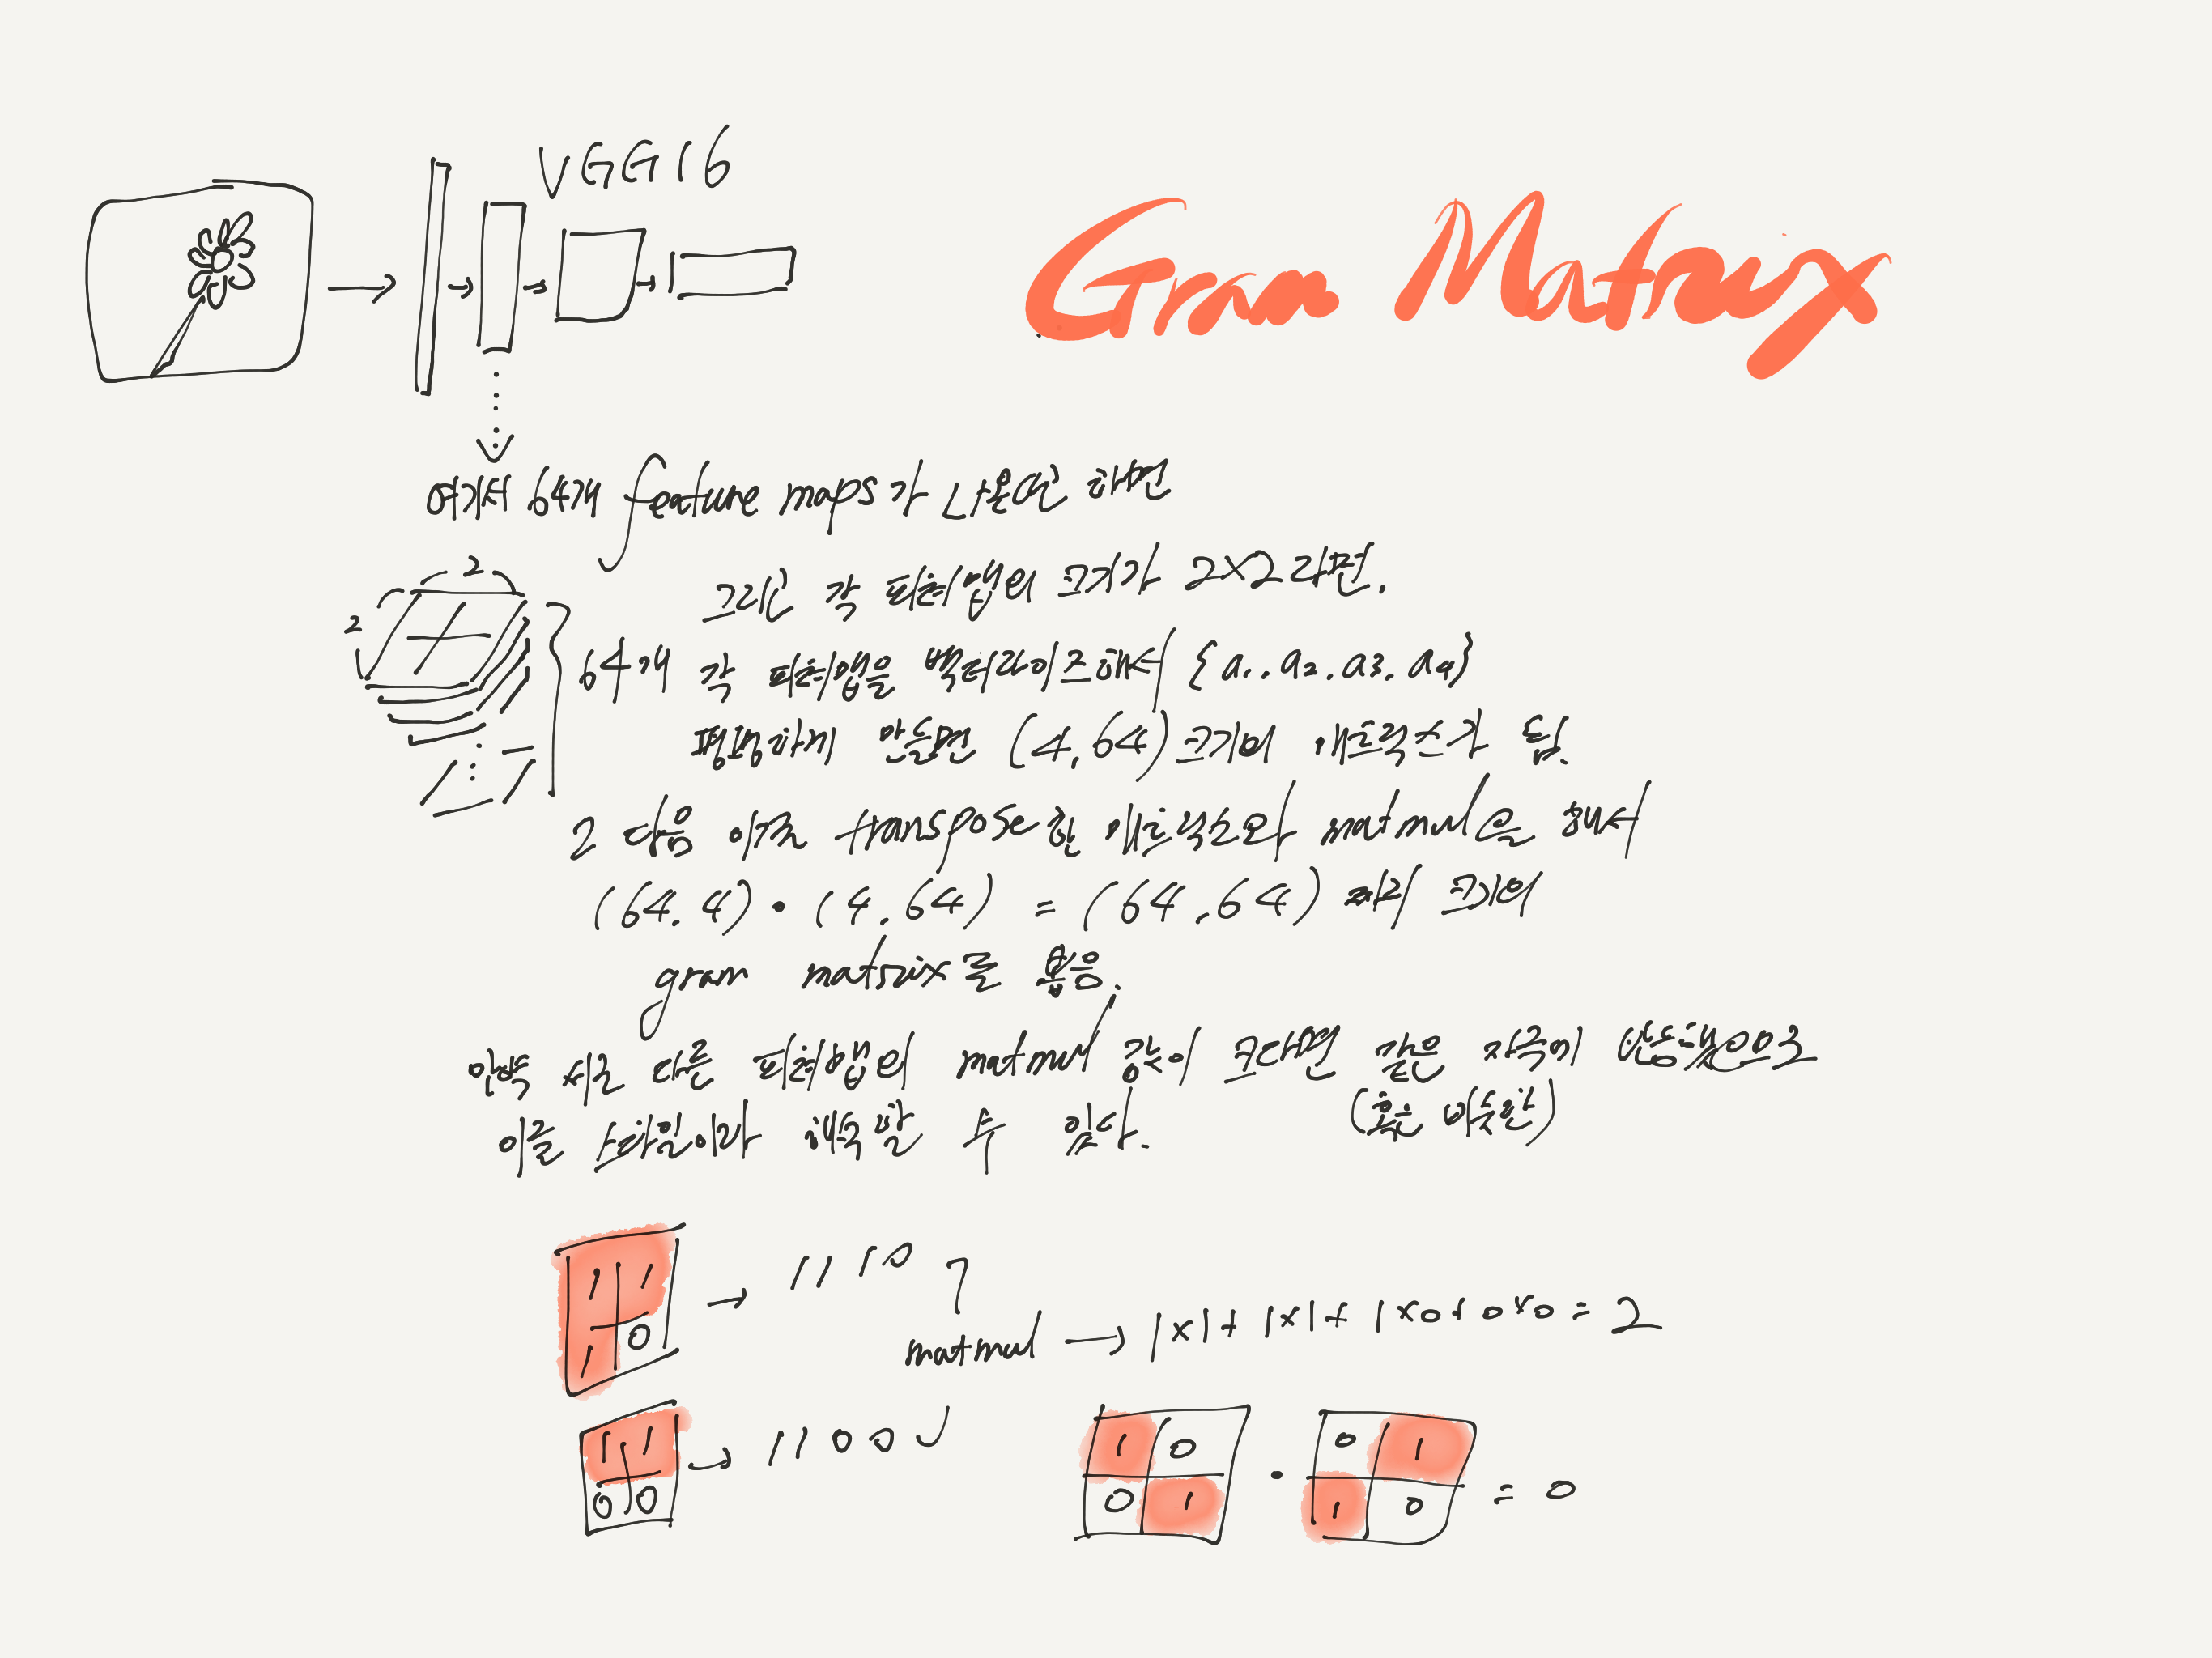 VGG16
Gram Matrix
여기서 64개 feature maps가 나온다 하면
그리고 각 피쳐맵의 크기가 2x2라면.
2
2
64개
각 피쳐맵을 벡터라이즈해서 {a1. a2. a3. a4}
평평하게 만들면 (4, 64)크기에 매트릭스가 됨.
그 다음 이를 transpose한 매트릭스와 matmul을 해서
(64. 4) • (4. 64) = (64, 64) 크기에
gram matrix를 뽑음.
만약 서로 다른 피쳐맵의 matmul 값이 크다면 같은 자극에 반응했으므로
(혹은 비슷한)
이를 스타일이라 해석할 수 있다.
1 1
1 0
→ 1 1 1 0
matmul → 1x1 + 1x1 + 1x0 + 0x0 = 2
1 1
0 0
→ 1 1 0 0
1 0
0 1
•
0 1
1 0
= 0